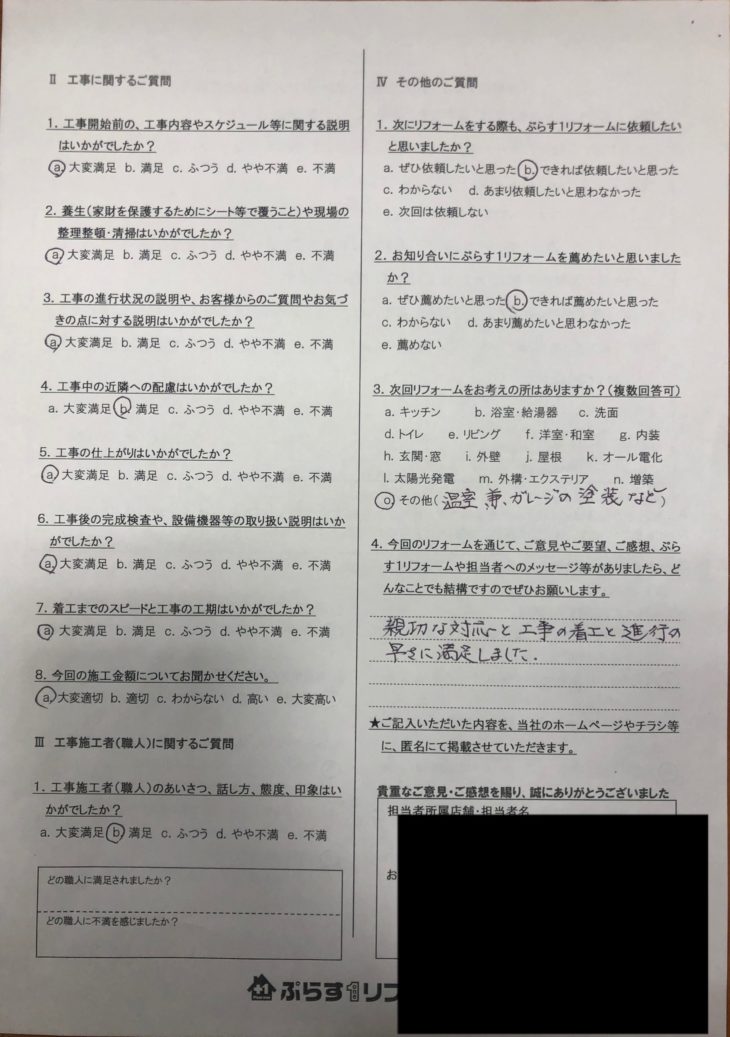 Ⅱ 工事に関するご質問
1. 工事開始前の、工事内容やスケジュール等に関する説明
はいかがでしたか?
a. 大変満足 b. 満足 c. ふつう d. やや不満 e. 不満
2. 養生(家財を保護するためにシート等で覆うこと)や現場の
整理整頓・清掃はいかがでしたか?
a. 大変満足 b. 満足 c. ふつう d. やや不満 e. 不満
3. 工事の進行状況の説明や、お客様からのご質問やお気づ
きの点に対する説明はいかがでしたか?
a. 大変満足 b. 満足 c. ふつう d. やや不満 e. 不満
4. 工事中の近隣への配慮はいかがでしたか?
a. 大変満足 b. 満足 c. ふつう d. やや不満 e. 不満
5. 工事の仕上がりはいかがでしたか?
a. 大変満足 b. 満足 c. ふつう d. やや不満 e. 不満
6. 工事後の完成検査や、設備機器等の取り扱い説明はいか
がでしたか?
a. 大変満足 b. 満足 c. ふつう d. やや不満 e. 不満
7. 着工までのスピードと工事の工期はいかがでしたか?
a. 大変満足 b. 満足 c. ふつう d. やや不満 e. 不満
8. 今回の施工金額についてお聞かせください。
a. 大変適切 b. 適切 c. わからない d. 高い e. 大変高い
Ⅲ 工事施工者(職人)に関するご質問
1. 工事施工者(職人)のあいさつ、話し方、態度、印象はい
かがでしたか?
a. 大変満足 b. 満足 c. ふつう d. やや不満 e. 不満
どの職人に満足されましたか?
どの職人に不満を感じましたか?
Ⅳ その他のご質問
1. 次にリフォームをする際も、ぷらす1リフォームに依頼したい
と思いましたか?
a. ぜひ依頼したいと思った b. できれば依頼したいと思った
c. わからない d. あまり依頼したいと思わなかった
e. 次回は依頼しない
2. お知り合いにぷらす1リフォームを薦めたいと思いました
か?
a. ぜひ薦めたいと思った b. できれば薦めたいと思った
c. わからない d. あまり薦めたいと思わなかった
e. 薦めない
3. 次回リフォームをお考えの所はありますか?(複数回答可)
a. キッチン b. 浴室・給湯器 c. 洗面
d. トイレ e. リビング f. 洋室・和室 g. 内装
h. 玄関・窓 i. 外壁 j. 屋根 k. オール電化
l. 太陽光発電 m. 外構・エクステリア n. 増築
o その他(温室兼、ガレージの塗装など)
4. 今回のリフォームを通じて、ご意見やご要望、ご感想、ぷら
す1リフォームや担当者へのメッセージ等がありましたら、ど
んなことでも結構ですのでぜひお願いします。
親切な対応と工事の着工と進行の
早さに満足しました.
★ご記入いただいた内容を、当社のホームページやチラシ等
に、匿名にて掲載させていただきます。
貴重なご意見・ご感想を賜り、誠にありがとうございました
担当者所属店舗・担当者名
お
+1
ぷらす1リフ